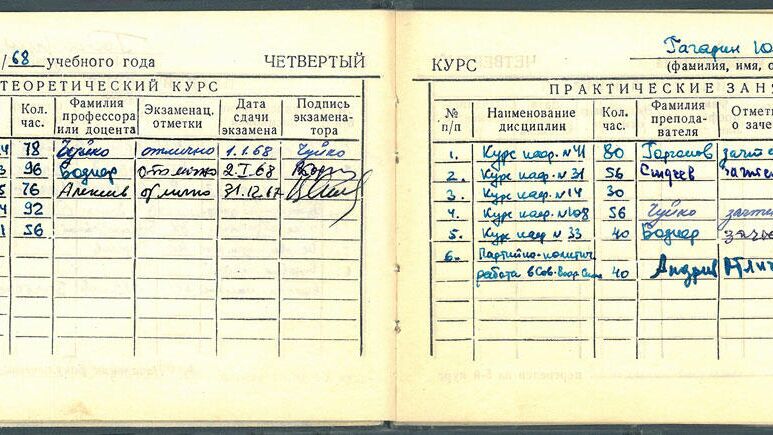 /68 учебного года ЧЕТВЕРТЫЙ
ТЕОРЕТИЧЕСКИЙ КУРС
Кол. час. Фамилия профессора или доцента Экзаменац. отметки Дата сдачи экзамена Подпись экзамена-тора
78 Чуйко отлично 1.1.68 Чуйко
96 Боднер отлично 2.I.68
76 Алексеев отлично 31.12.67
92
56
КУРС Гагарин Ю
(фамилия, имя, о
ПРАКТИЧЕСКИЕ ЗАНЯ
№ п/п Наименование дисциплин Кол. час. Фамилия препода-вателя Отмет о заче
1. Курс каф. №41 80
2. Курс каф. №31 56
3. Курс каф. №14 30
4. Курс каф. №108 56 Чуйко зачт
5. Курс каф. №33 40 Боднер
6. Партийно-политич.
работа в Сов. Воор. Силах 40 Отлич